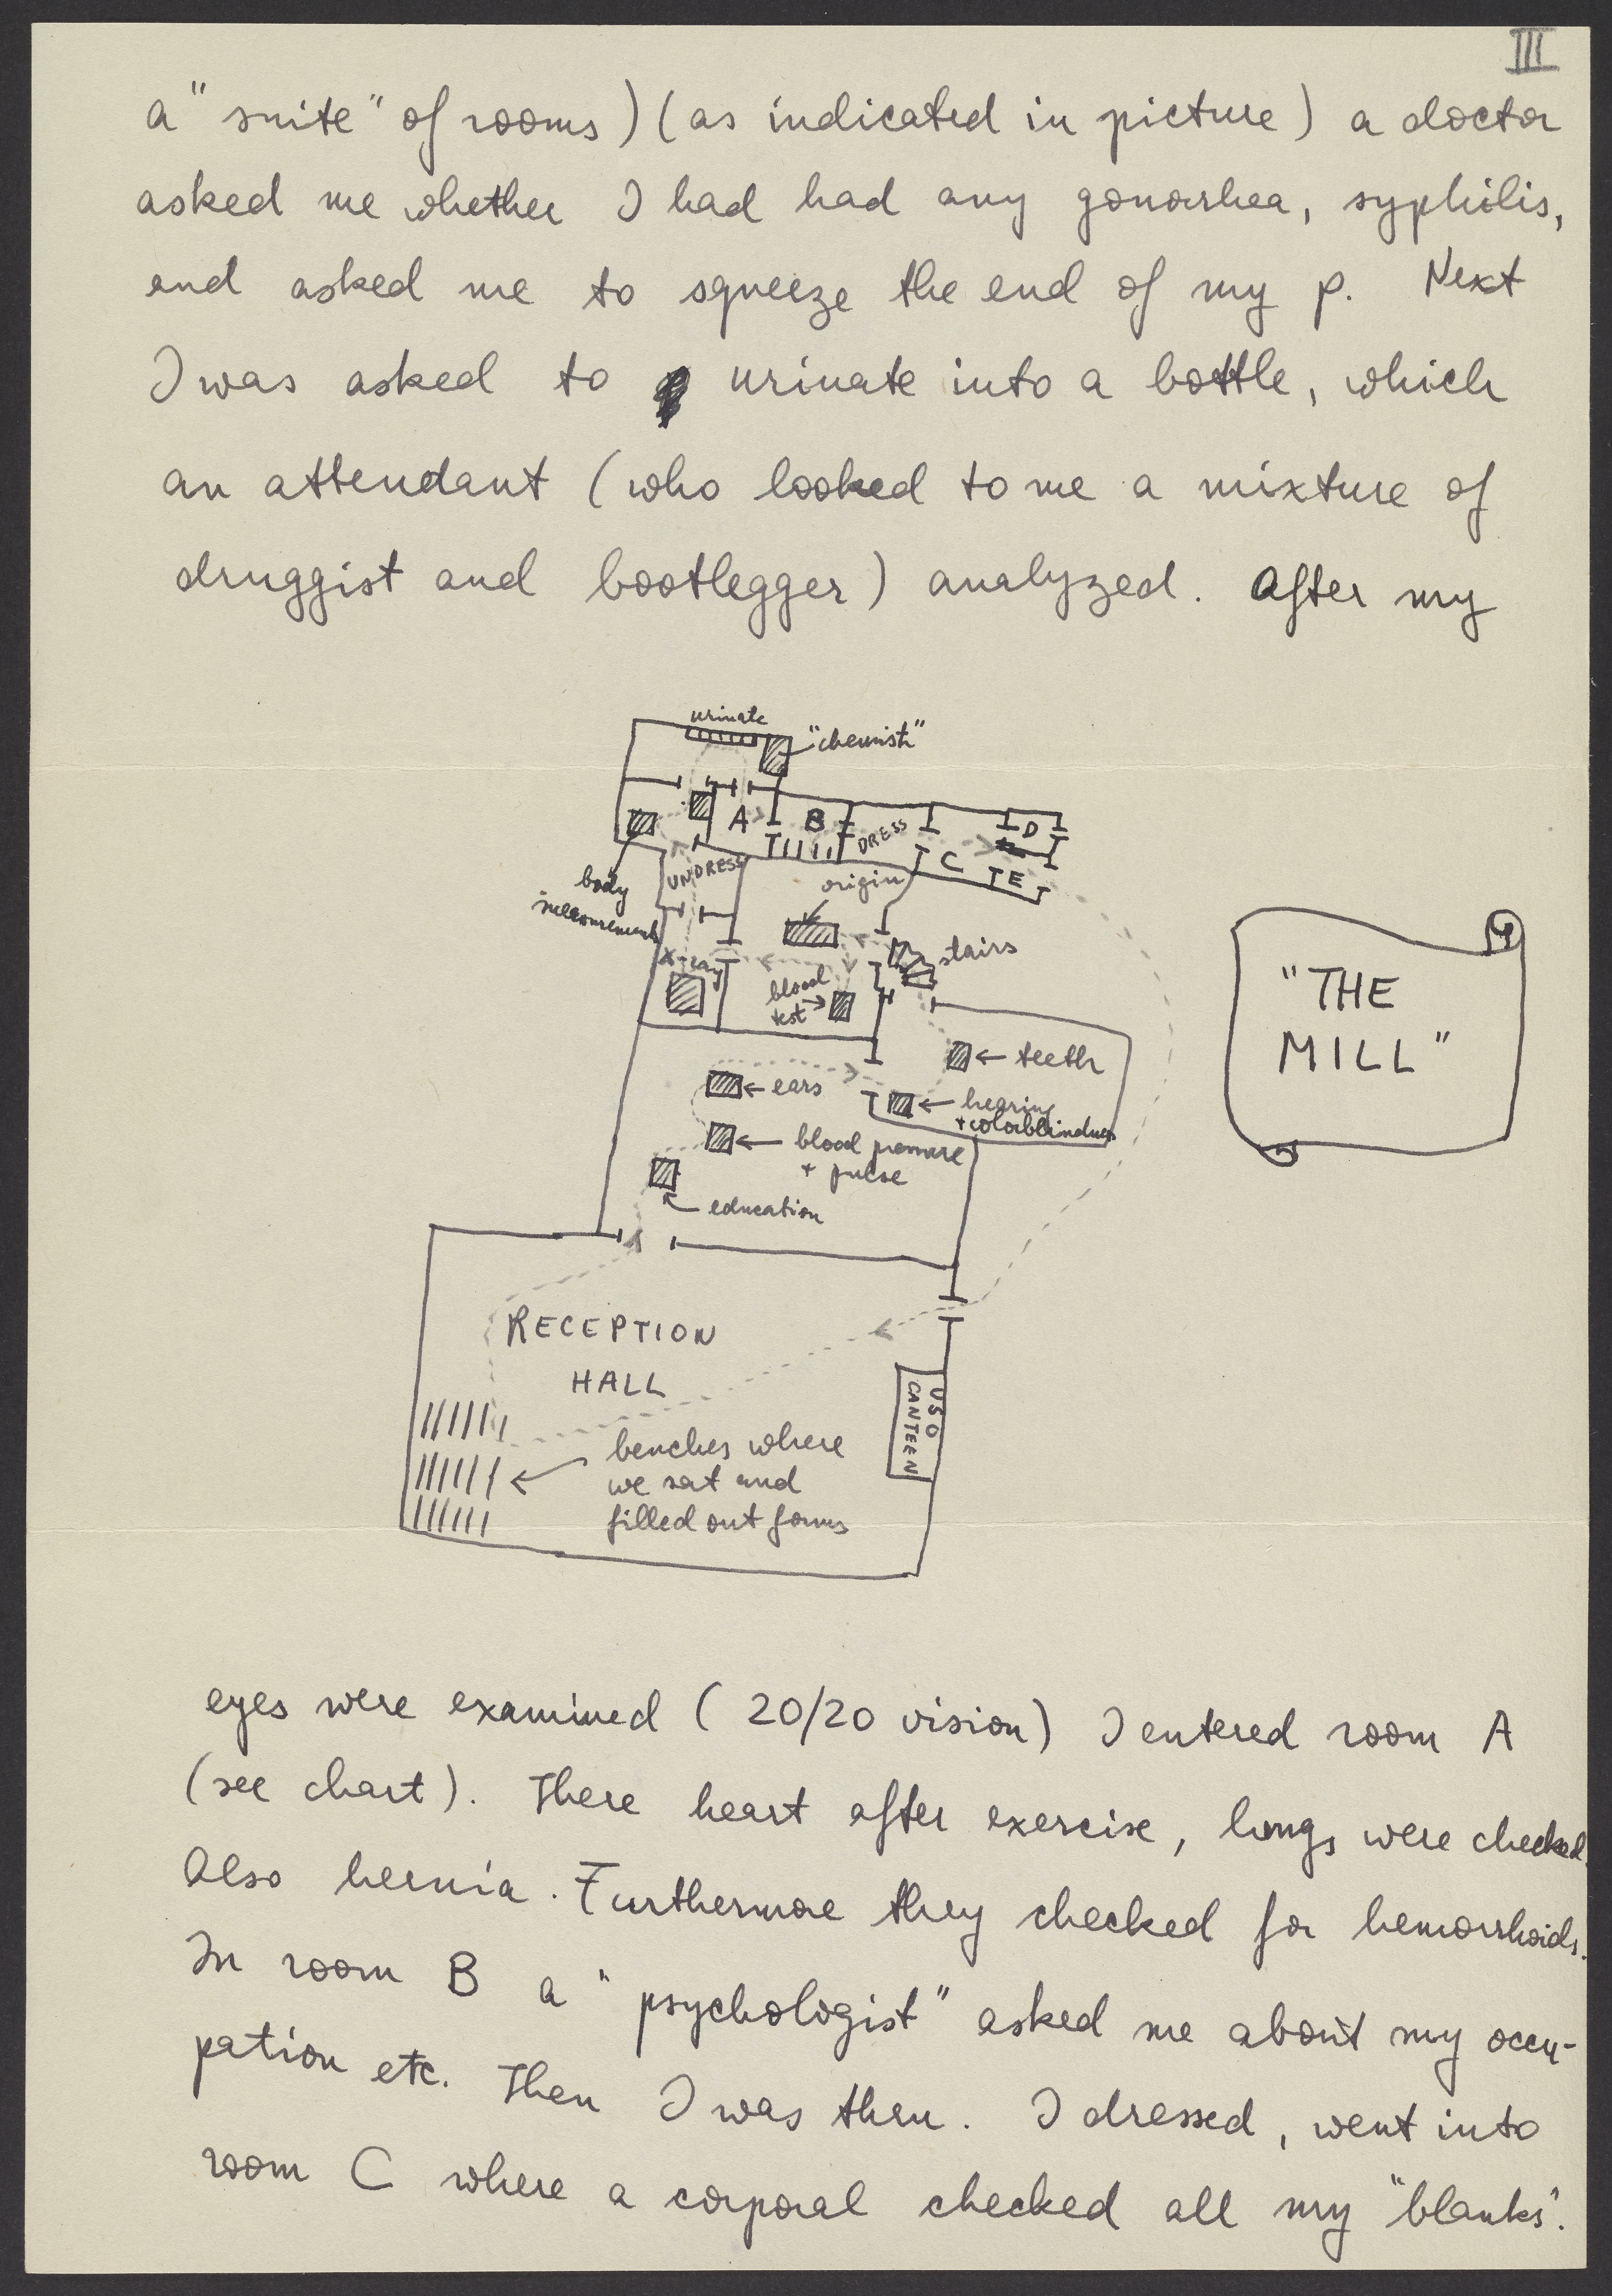 III
a "suite" of rooms) (as indicated in picture) a doctor
asked me whether I had had any gonorrhea, syphilis,
and asked me to squeeze the end of my p. Next
I was asked to urinate into a bottle, which
an attendant (who looked to me a mixture of
druggist and bootlegger) analyzed. After my
urinate
"chemist"
A
B
DRESS
D
C
E
UNDRESS
body
measurements
origin
x-ray
stairs
blood
test
"THE
MILL"
teeth
ears
hearing
+ colorblindness
blood pressure
+ pulse
education
RECEPTION
HALL
USO
CANTEEN
benches where
we sat and
filled out forms
eyes were examined (20/20 vision) I entered room A
(see chart). There heart after exercise, lungs were checked.
Also hernia. Furthermore they checked for hemorrhoids.
In room B a "psychologist" asked me about my occu-
pation etc. Then I was thru. I dressed, went into
room C where a corporal checked all my "blanks".